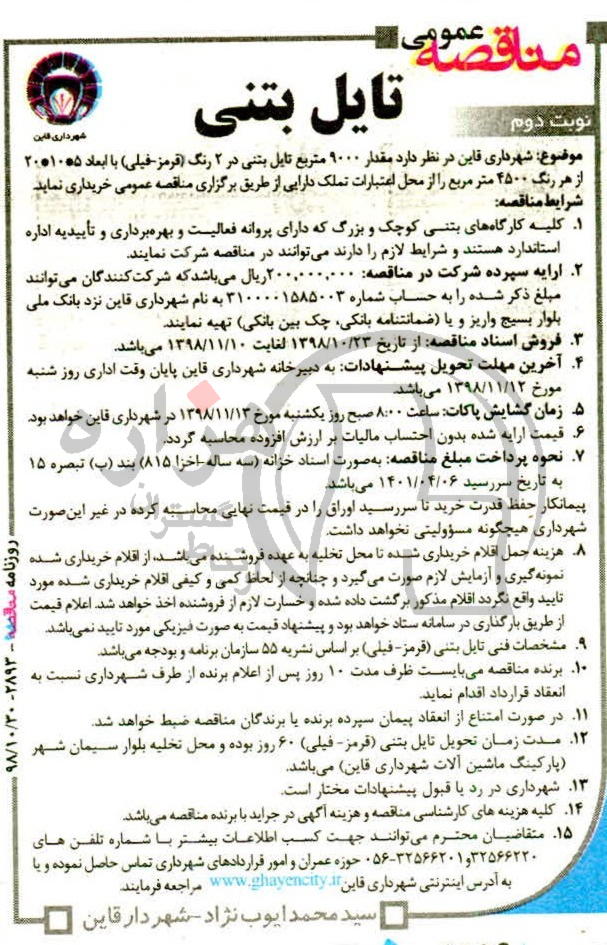 مناقصه عمومی
نوبت دوم
تایل بتنی
شهرداری قاین
موضوع: شهرداری قاین در نظر دارد مقدار ۹۰۰۰ متربع تایل بتنی در ۲ رنگ (قرمز-فیلی) با ابعاد ۵*۱۰*۲۰
از هر رنگ ۴۵۰۰ متر مربع را از محل اعتبارات تملک دارایی از طریق برگزاری مناقصه عمومی خریداری نماید.
شرایط مناقصه:
۱. کلیه کارگاه‌های بتنی کوچک و بزرگ که دارای پروانه فعالیت و بهره‌برداری و تأییدیه اداره
استاندارد هستند و شرایط لازم را دارند می‌توانند در مناقصه شرکت نمایند.
۲. ارایه سپرده شرکت در مناقصه: ۲۰۰,۰۰۰,۰۰۰ریال می‌باشدکه شرکت‌کنندگان می‌توانند
مبلغ ذکر شده را به حساب شماره ۳۱۰۰۰۰۱۵۸۵۰۰۳ به نام شهرداری قاین نزد بانک ملی
بلوار بسیج واریز و یا (ضمانتنامه بانکی، چک بین بانکی) تهیه نمایند.
۳. فروش اسناد مناقصه: از تاریخ ۱۳۹۸/۱۰/۲۳ لغایت ۱۳۹۸/۱۱/۱۰ می‌باشد.
۴. آخرین مهلت تحویل پیشنهادات: به دبیرخانه شهرداری قاین پایان وقت اداری روز شنبه
مورخ ۱۳۹۸/۱۱/۱۲ می‌باشد.
۵. زمان گشایش پاکات: ساعت ۸:۰۰ صبح روز یکشنبه مورخ ۱۳۹۸/۱۱/۱۳ در شهرداری قاین خواهد بود.
۶. قیمت ارایه شده بدون احتساب مالیات بر ارزش افزوده محاسبه گردد.
۷. نحوه پرداخت مبلغ مناقصه: به‌صورت اسناد خزانه (سه ساله-اخزا ۸۱۵) بند (ب) تبصره ۱۵
به تاریخ سررسید ۱۴۰۱/۰۴/۰۶ می‌باشد.
پیمانکار حفظ قدرت خرید تا سررسید اوراق را در قیمت نهایی محاسبه کرده در غیر این‌صورت
شهرداری هیچگونه مسؤولیتی نخواهد داشت.
۸. هزینه حمل اقلام خریداری شده تا محل تخلیه به عهده فروشنده می‌باشد، از اقلام خریداری شده
نمونه‌گیری و آزمایش لازم صورت می‌گیرد و چنانچه از لحاظ کمی و کیفی اقلام خریداری شده مورد
تایید واقع نگردد اقلام مذکور برگشت داده شده و خسارت لازم از فروشنده اخذ خواهد شد. اعلام قیمت
از طریق بارگذاری در سامانه ستاد خواهد بود و پیشنهاد قیمت به صورت فیزیکی مورد تایید نمی‌باشد.
۹. مشخصات فنی تایل بتنی (قرمز-فیلی) بر اساس نشریه ۵۵ سازمان برنامه و بودجه می‌باشد.
۱۰. برنده مناقصه می‌بایست ظرف مدت ۱۰ روز پس از اعلام برنده از طرف شهرداری نسبت به
انعقاد قرارداد اقدام نماید.
۱۱. در صورت امتناع از انعقاد پیمان سپرده برنده یا برندگان مناقصه ضبط خواهد شد.
۱۲. مدت زمان تحویل تایل بتنی (قرمز- فیلی) ۶۰ روز بوده و محل تخلیه بلوار سیمان شهر
(پارکینگ ماشین آلات شهرداری قاین) می‌باشد.
۱۳. شهرداری در رد یا قبول پیشنهادات مختار است.
۱۴. کلیه هزینه های کارشناسی مناقصه و هزینه آگهی در جراید با برنده مناقصه می‌باشد.
۱۵. متقاضیان محترم می‌توانند جهت کسب اطلاعات بیشتر با شماره تلفن های
۳۲۵۶۶۲۲۰و۳۲۵۶۶۲۰۱-۰۵۶ حوزه عمران و امور قراردادهای شهرداری تماس حاصل نموده و یا
به آدرس اینترنتی شهرداری قاین www.ghayencity.ir مراجعه فرمایند.
سید محمد ایوب نژاد-شهردار قاین
روزنامه مناقصه - ۲۸۹۳- ۹۸/۱۰/۳۰
هزاره
گستران